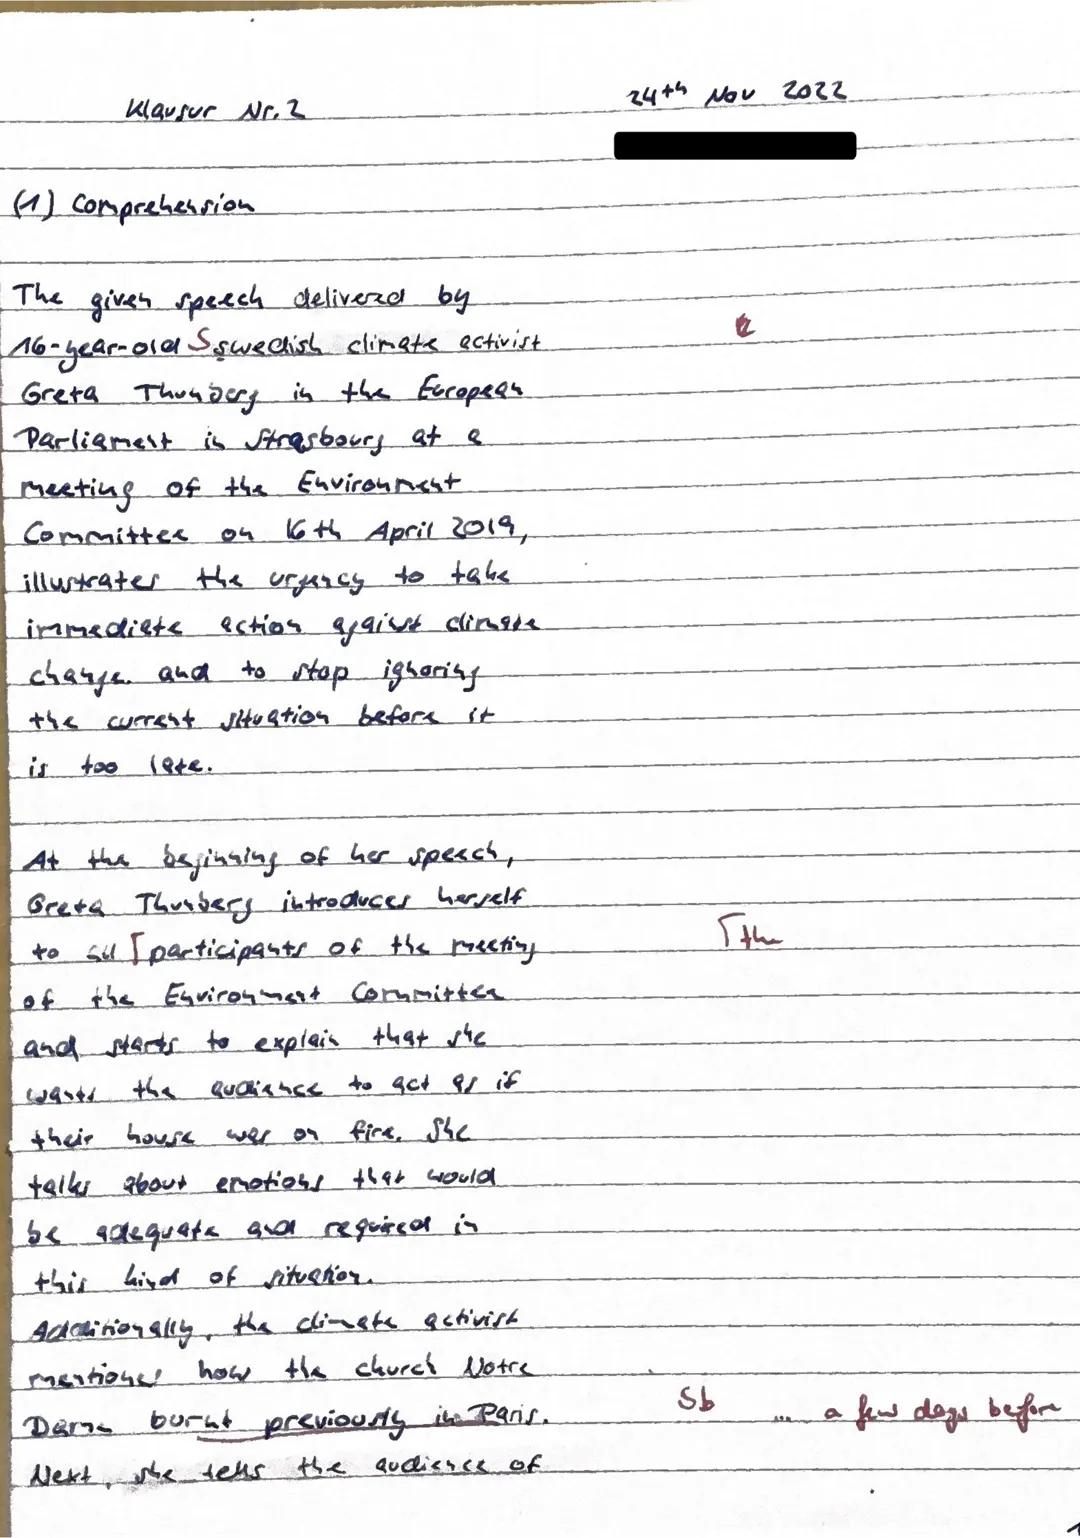 Klausur Nr. 2
24th Nov 2022
(1) Comprehension
The given speech delivered by
16-year-old Sswedish climate activist
Greta Thunberg in the European
Parliament in Strasbourg at a
meeting of the Environment
Committee on 16th April 2019,
illustrates the urgency to take
immediate action against climate
change and to stop ignoring
the current situation before it
is too late.
At the beginning of her speech,
Greta Thunberg introduces herself
to all ⌈participants of the meeting
⌈the
of the Environment Committee
and starts to explain that she
wants the audience to act as if
their house was on fire. She
talks about emotions that would
be adequate and required in
this kind of situation.
Additionally, the climate activist
mentiones how the church Notre
Dame burnt previously in Paris.
Sb ... a few days before
Next, she tells the audience of
1